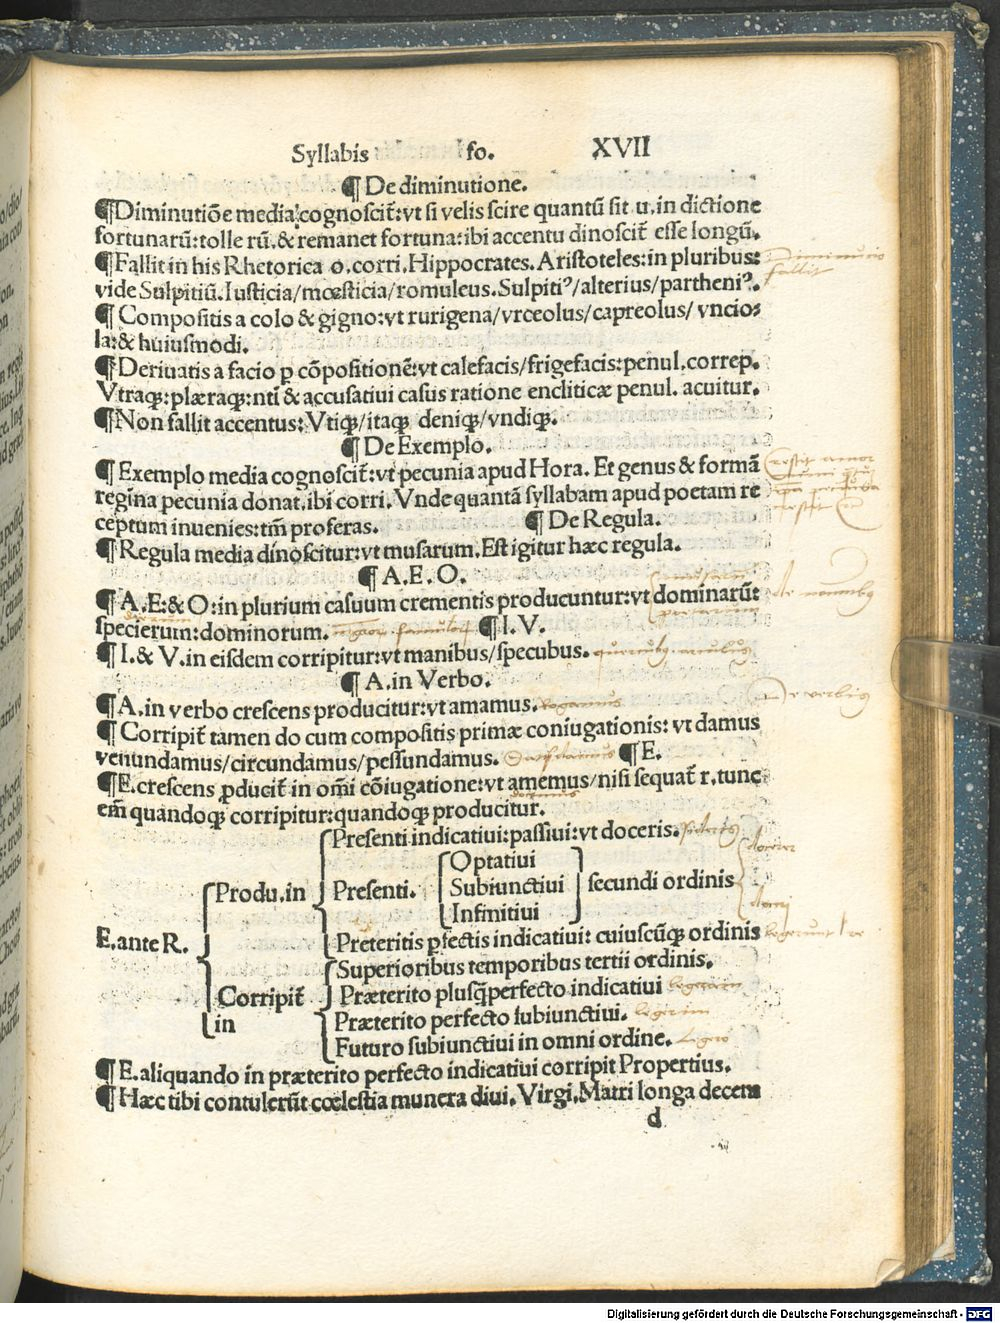 Syllabis fo. XVII
¶ De diminutione.
¶Diminutiōe media cognoscit̃:vt si velis scire quantũ sit .u. in dictione
fortunarũ:tolle rũ.& remanet fortuna:ibi accentu dinoscit̃ esse longũ.
¶Fallit in his Rhetorica o.corri.Hippocrates.Aristoteles:in pluribus:
vide Sulpitiũ.Iusticia/mœsticia/romuleus.Sulpitiꝰ/alterius/partheniꝰ.
¶ Compositis a colo & gigno:vt rurigena/vrceolus/capreolus/ vncio⸗
la:& huiusmodi.
¶Deriuatis a facio p cōpositionē:vt calefacis/frigefacis:penul.correp.
Vtraqꝫ:plæraqꝫ:nti & accusatiui casus ratione encliticæ penul. acuitur.
¶Non fallit accentus: Vtiqꝫ/itaqꝫ deniqꝫ/vndiqꝫ.
¶ De Exemplo.
¶ Exemplo media cognoscit̃:vt pecunia apud Hora. Et genus & formã
regina pecunia donat.ibi corri. Vnde quantã syllabam apud poetam re
ceptum inuenies:tm̃ proferas. ¶ De Regula.
¶ Regula media dinoscitur:vt musarum.Est igitur hæc regula.
¶ A.E.O.
¶ A.E:& O:in plurium casuum crementis producuntur:vt dominarũ:
specierum:dominorum. ¶ I.V.
¶ I.& V.in eisdem corripitur:vt manibus/specubus.
¶ A.in Verbo.
¶ A.in verbo crescens producitur:vt amamus.
¶ Corripit̃ tamen do cum compositis primæ coniugationis: vt damus
venundamus/circundamus/pessundamus. ¶ E.
¶E.crescens ꝓducit̃ in om̃i cōiugatione:vt amemus/nisi sequat̃ r.tunc
em̃ quandoqꝫ corripitur:quandoqꝫ producitur.
Presenti indicatiui:passiui:vt doceris.
Optatiui
Produ.in Presenti. Subiunctiui secundi ordinis
Infinitiui
E.ante R. Preteritis ꝑfectis indicatiui: cuiuscũqꝫ ordinis
Superioribus temporibus tertii ordinis.
Corripit̃ Præterito plusq̃perfecto indicatiui
in Præterito perfecto subiunctiui.
Futuro subiunctiui in omni ordine.
¶ E.aliquando in præterito perfecto indicatiui corripit Propertius.
¶ Hæc tibi contulerũt cœlestia munera diui. Virgi.Matri longa decem
d
Digitalisierung gefördert durch die Deutsche Forschungsgemeinschaft - DFG